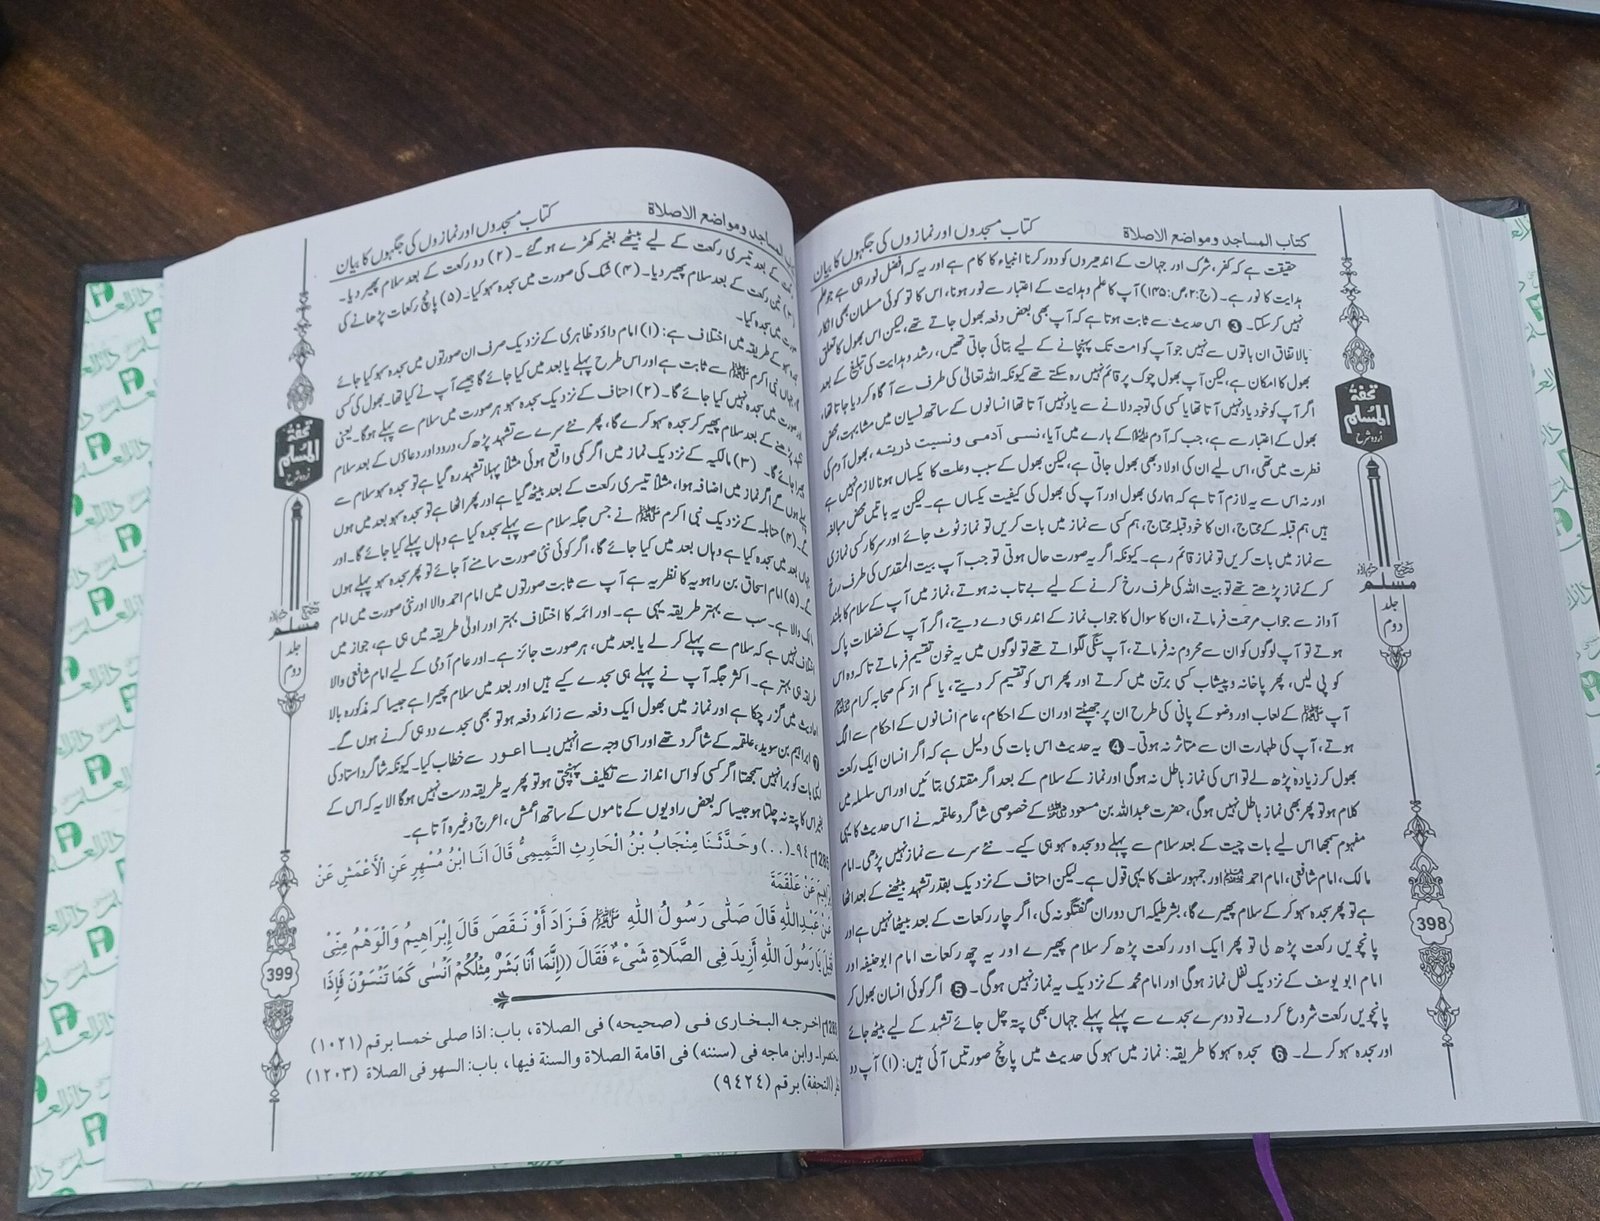 کتاب المساجد ومواضع الاصلاة
کتاب مسجدوں اور نمازوں کی جگہوں کا بیان
حقیقت ہے کہ کفر، شرک اور جہالت کے اندھیروں کو دور کرنا انبیاء کا کام ہے اور یہ کہ افضل نور ہی ہے جو علم
ہدایت کا نور ہے۔ (ج:۲،ص:۱۴۵) آپ کا علم و ہدایت کے اعتبار سے نور ہونا، اس کا تو کوئی مسلمان بھی انکار
نہیں کر سکتا۔ ❸ اس حدیث سے ثابت ہوتا ہے کہ آپ بھی بعض دفعہ بھول جاتے تھے، لیکن اس بھول کا تعلق
بالاتفاق ان باتوں سے نہیں جو آپ کو امت تک پہنچانے کے لیے بتائی جاتی تھیں، رشد و ہدایت کی تبلیغ کے بعد
بھول کا امکان ہے، لیکن آپ بھول چوک پر قائم نہیں رہ سکتے تھے کیونکہ اللہ تعالیٰ کی طرف سے آگاہ کر دیا جاتا تھا،
اگر آپ کو خود یاد نہیں آتا تھا یا کسی کی توجہ دلانے سے یاد نہیں آتا تھا انسانوں کے ساتھ نسیان میں مشابہت، محض
بھول کے اعتبار سے ہے، جب کہ آدم علیہ السلام کے بارے میں آیا، نسی آدمی ونسیت ذریتہ، بھول آدم کی
فطرت میں تھی، اس لیے ان کی اولاد بھی بھول جاتی ہے، لیکن بھول کے سبب و علت کا یکساں ہونا لازم نہیں ہے
اور نہ اس سے یہ لازم آتا ہے کہ ہماری بھول اور آپ کی بھول کی کیفیت یکساں ہے۔ لیکن یہ باتیں محض مبالغہ
ہیں ہم قبلہ کے محتاج، ان کا خود قبلہ محتاج، ہم کسی سے نماز میں بات کریں تو نماز ٹوٹ جائے اور سرکار کسی نمازی
سے نماز میں بات کریں تو نماز قائم رہے۔ کیونکہ اگر یہ صورت حال ہوتی تو جب آپ بیت المقدس کی طرف رخ
کر کے نماز پڑھتے تھے تو بیت اللہ کی طرف رخ کرنے کے لیے بے تاب نہ ہوتے، نماز میں آپ کے سلام کا بلند
آواز سے جواب مرحمت فرماتے، ان کا سوال کا جواب نماز کے اندر ہی دے دیتے، اگر آپ کے فضلات پاک
ہوتے تو آپ لوگوں کو ان سے محروم نہ فرماتے، آپ سنگی لگواتے تھے تو لوگوں میں یہ خون تقسیم فرماتے تاکہ وہ اس
کو پی لیں، پھر پاخانہ و پیشاب کسی برتن میں کرتے اور پھر اس کو تقسیم کر دیتے، یا کم از کم صحابہ کرام
آپ ﷺ کے لعاب اور وضو کے پانی کی طرح ان پر جھپٹتے اور ان کے احکام، عام انسانوں کے احکام سے الگ
ہوتے، آپ کی طہارت ان سے متاثر نہ ہوتی۔ ❹ یہ حدیث اس بات کی دلیل ہے کہ اگر انسان ایک رکعت
بھول کر زیادہ پڑھ لے تو اس کی نماز باطل نہ ہوگی اور نماز کے سلام کے بعد اگر مقتدی بتائیں اور اس سلسلہ میں
کلام ہو تو پھر بھی نماز باطل نہیں ہوگی، حضرت عبداللہ بن مسعود کے خصوصی شاگرد علقمہ نے اس حدیث کا یہی
مفہوم سمجھا اس لیے بات چیت کے بعد سلام سے پہلے دو سجدہ سہو ہی کیے۔ نئے سرے سے نماز نہیں پڑھی۔ امام
مالک، امام شافعی، امام احمد اور جمہور سلف کا یہی قول ہے۔ لیکن احناف کے نزدیک بقدر تشہد بیٹھنے کے بعد اٹھا
ہے تو پھر سجدہ سہو کر کے سلام پھیرے گا، بشرطیکہ اس دوران گفتگو نہ کی، اگر چار رکعات کے بعد بیٹھا نہیں ہے اور
پانچویں رکعت پڑھ لی تو پھر ایک اور رکعت پڑھ کر سلام پھیرے اور یہ چھ رکعات امام ابوحنیفہ اور
امام ابو یوسف کے نزدیک نفل نماز ہوگی اور امام محمد کے نزدیک یہ نماز نہیں ہوگی۔ ❺ اگر کوئی انسان بھول کر
پانچویں رکعت شروع کر دے تو دوسرے سجدے سے پہلے پہلے جہاں بھی پتہ چل جائے تشہد کے لیے بیٹھ جائے
اور سجدہ سہو کر لے۔ ❻ سجدہ سہو کا طریقہ: نماز میں سہو کی حدیث میں پانچ صورتیں آئی ہیں: (۱) آپ دو
تحفۃ
المسلم
اردو شرح
صحیح
مسلم
جلد
دوم
398
المساجد ومواضع الاصلاة
کتاب مسجدوں اور نمازوں کی جگہوں کا بیان
کے بعد تیسری رکعت کے لیے بیٹھے بغیر کھڑے ہو گئے۔ (۲) دو رکعت کے بعد سلام پھیر دیا۔
(۳) تین رکعت کے بعد سلام پھیر دیا۔ (۴) شک کی صورت میں سجدہ سہو کیا۔ (۵) پانچ رکعات پڑھانے کی
میں سجدہ کیا۔
کے طریقہ میں اختلاف ہے: (۱) امام داؤد ظاہری کے نزدیک صرف ان صورتوں میں سجدہ سہو کیا جائے
جہاں نبی اکرم ﷺ سے ثابت ہے اور اس طرح پہلے یا بعد میں کیا جائے گا جیسے آپ نے کیا تھا۔ بھول کی کسی
اور صورت میں سجدہ نہیں کیا جائے گا۔ (۲) احناف کے نزدیک سجدہ سہو ہر صورت میں سلام سے پہلے ہوگا۔ یعنی
پڑھنے کے بعد سلام پھیر کر سجدہ سہو کرے گا، پھر نئے سرے سے تشہد پڑھ کر، درود اور دعاؤں کے بعد سلام
جائے گا۔ (۳) مالکیہ کے نزدیک نماز میں اگر کمی واقع ہوئی مثلاً پہلا تشہد رہ گیا ہے تو سجدہ سہو سلام سے
پہلے ہوں گے اگر نماز میں اضافہ ہوا، مثلاً تیسری رکعت کے بعد بیٹھ گیا ہے اور پھر اٹھا ہے تو سجدہ سہو بعد میں ہوں
گے۔ (۴) حنابلہ کے نزدیک نبی اکرم ﷺ نے جس جگہ سلام سے پہلے سجدہ کیا ہے وہاں پہلے کیا جائے گا۔ اور
جہاں بعد میں سجدہ کیا ہے وہاں بعد میں کیا جائے گا، اگر کوئی نئی صورت سامنے آ جائے تو پھر سجدہ سہو پہلے ہوں
گے۔ (۵) امام اسحاق بن راہویہ کا نظریہ ہے آپ سے ثابت صورتوں میں امام احمد والا اور نئی صورت میں امام
مالک والا ہے۔ سب سے بہتر طریقہ یہی ہے۔ اور ائمہ کا اختلاف بہتر اور اولیٰ طریقہ میں ہی ہے، جواز میں
اختلاف نہیں ہے کہ سلام سے پہلے کرلے یا بعد میں، ہر صورت جائز ہے۔ اور عام آدمی کے لیے امام شافعی والا
طریقہ ہی بہتر ہے۔ اکثر جگہ آپ نے پہلے ہی سجدے کیے ہیں اور بعد میں سلام پھیرا ہے جیسا کہ مذکورہ بالا
احادیث میں گزر چکا ہے اور نماز میں بھول ایک دفعہ سے زائد دفعہ ہو تو بھی سجدے دو ہی کرنے ہوں گے۔
❼ ابراہیم بن سوید، علقمہ کے شاگرد تھے اور اسی وجہ سے انہیں یا اعور سے خطاب کیا۔ کیونکہ شاگرد استاد کی
بات کو برا نہیں سمجھتا اگر کسی کو اس انداز سے تکلیف پہنچتی ہو تو پھر یہ طریقہ درست نہیں ہوگا الا یہ کہ اس کے
بغیر اس کا پتہ نہ چلتا ہو جیسا کہ بعض راویوں کے ناموں کے ساتھ اعمش، اعرج وغیرہ آتا ہے۔
1285] ٩٤۔(..) وحَدَّثَنَا مِنْجَابُ بْنُ الْحَارِثِ التَّمِيمِىُّ قَالَ انَا ابْنُ مُسْهِرٍ عَنِ الْأَعْمَشِ عَنْ
عَنْ عَلْقَمَةَ
عَنْ عَبْدِاللّٰهِ قَالَ صَلّٰى رَسُولُ اللّٰهِ ﷺ فَزَادَ أَوْ نَقَصَ قَالَ إِبْرَاهِيمُ وَالْوَهْمُ مِنِّى
يَا رَسُولَ اللّٰهِ أَزِيدَ فِى الصَّلَاةِ شَىْءٌ فَقَالَ ((إِنَّمَا أَنَا بَشَرٌ مِثْلُكُمْ أَنْسٰى كَمَا تَنْسَوْنَ فَإِذَا
اخرجه البخارى فى (صحيحه) فى الصلاة، باب: اذا صلى خمسا برقم (١٠٢١)
وابن ماجه فى (سننه) فى اقامة الصلاة والسنة فيها، باب: السهو فى الصلاة (١٢٠٣)
(التحفة) برقم (٩٤٢٤)
تحفۃ
المسلم
اردو شرح
صحیح
مسلم
جلد
دوم
399